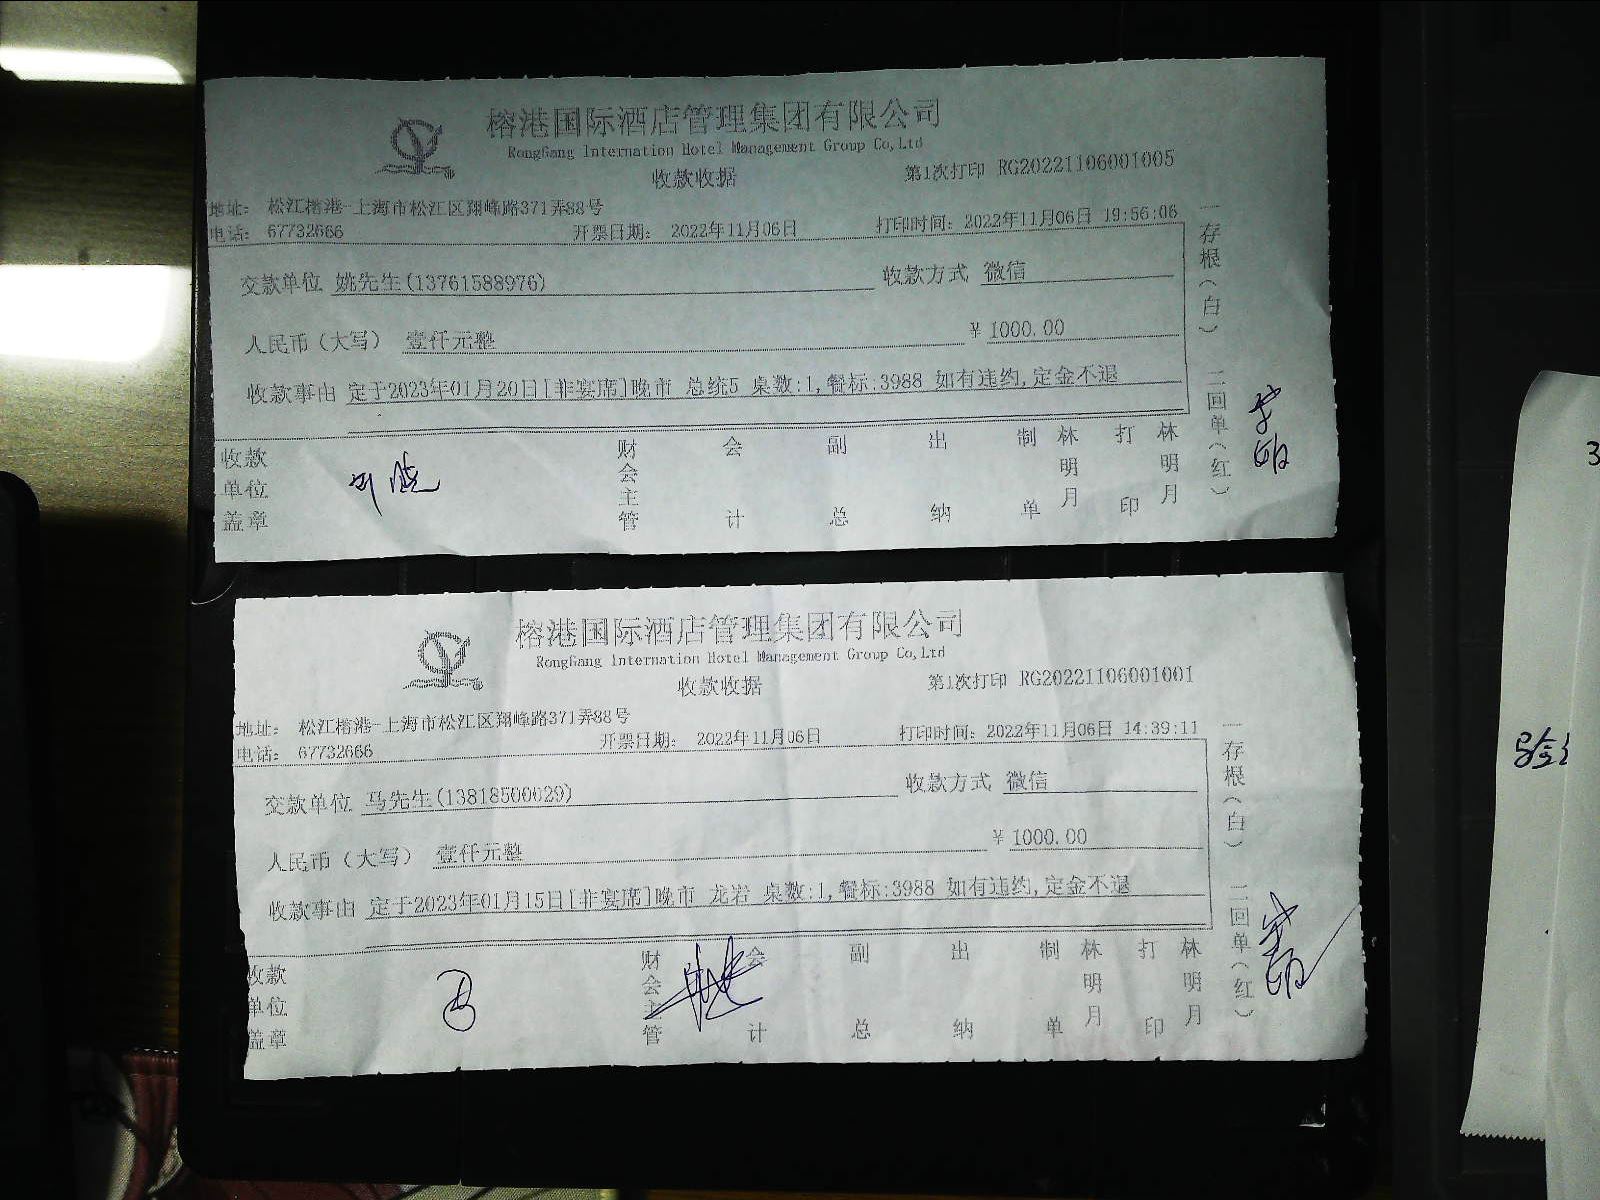 榕港国际酒店管理集团有限公司
RongGang Internation Hotel Management Group Co,Ltd
收款收据
第1次打印 RG20221106001005
地址： 松江榕港-上海市松江区翔峰路371弄88号
电话： 67732666 开票日期： 2022年11月06日 打印时间：2022年11月06日 19:56:06
交款单位 姚先生(13761588976) 收款方式 微信
人民币（大写） 壹仟元整 ￥ 1000.00
收款事由 定于2023年01月20日[非宴席]晚市 总统5 桌数:1,餐标:3988 如有违约,定金不退
收款单位盖章 财会主管 会计 副总 出纳 制单 林明月 打印 林明月
一存根（白） 二回单（红）
榕港国际酒店管理集团有限公司
RongGang Internation Hotel Management Group Co,Ltd
收款收据
第1次打印 RG20221106001001
地址： 松江榕港-上海市松江区翔峰路371弄88号
电话： 67732666 开票日期： 2022年11月06日 打印时间：2022年11月06日 14:39:11
交款单位 马先生(13818500029) 收款方式 微信
人民币（大写） 壹仟元整 ￥ 1000.00
收款事由 定于2023年01月15日[非宴席]晚市 龙岩 桌数:1,餐标:3988 如有违约,定金不退
收款单位盖章 财会主管 会计 副总 出纳 制单 林明月 打印 林明月
一存根（白） 二回单（红）
3